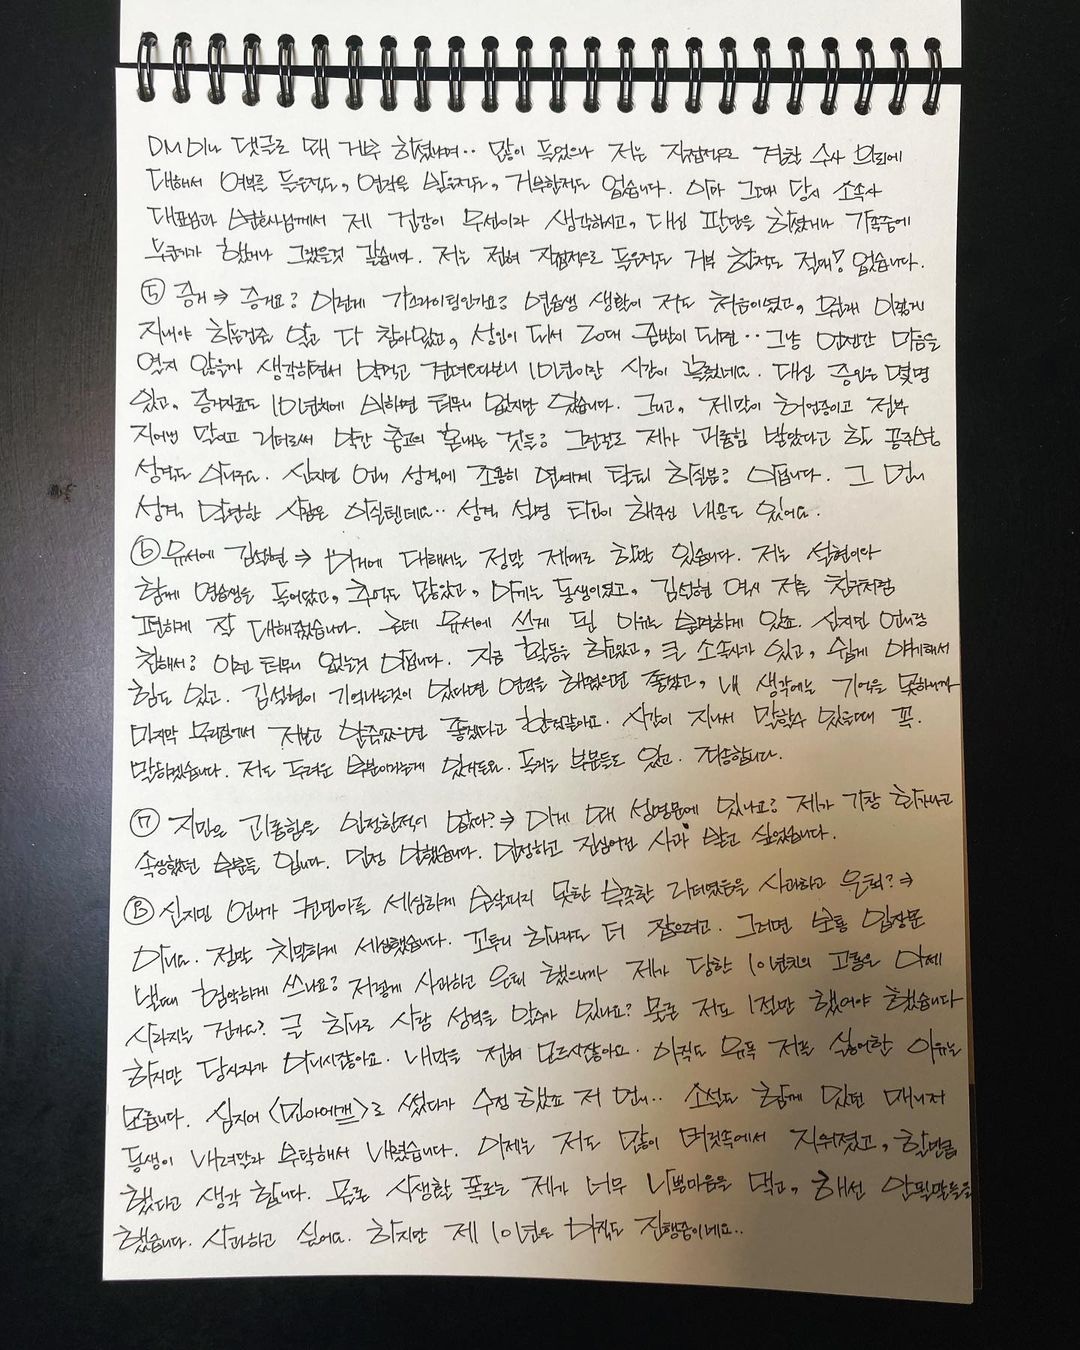 DM이나 댓글로 왜 거부 하셨냐며.. 많이 들었으나 저는 직접적으로 경찰 수사 의뢰에
대해서 여부를 들은적도, 연락을 받은적도, 거부한적도 없습니다. 아마 그때 당시 소속사
대표님과 변호사님께서 제 건강이 우선이라 생각하시고, 대신 판단을 하셨거나 가족중에
누군가가 했거나 그랬을것 같습니다. 저는 전혀 직접적으로 들은적도 거부 한적도 절대! 없습니다.
⑤ 증거 ⇒ 증거요? 이런게 가스라이팅인가요? 연습생 생활이 저도 처음이였고, 원래 이렇게
지내야 하는건줄 알고 다 참아왔고, 성인이 되서 20대 중반이 되면.. 그냥 언젠간 마음을
열지 않을까 생각하면서 약먹고 견뎌오다보니 10년이란 시간이 흘렀네요. 대신 증인은 몇명
있고, 증거자료도 10년치에 비하면 터무니 없지만 있습니다. 그리고, 제말이 허언증이고 전부
지어낸 말이고 리더로써 약간 충고의 혼내는 것들? 그런걸로 제가 괴롭힘 받았다고 할
성격도 아니구요. 신지민 언니 성격에 조용히 연예계 탈퇴 하실분? 아닙니다. 그 언니
성격 만만한 사람은 아실텐데요.. 성격 설명 타인이 해주신 내용도 있어요.
⑥ 유서에 김설현 ⇒ 여기에 대해서는 정말 제대로 할말 있습니다. 저는 설현이와
함께 연습생을 들어왔고, 추억도 많았고, 아끼는 동생이였고, 김설현 역시 저를 친구처럼
편하게 잘 대해줬습니다. 근데 유서에 쓰게 된 이유는 분명하게 있죠. 신지민 언니랑
친해서? 이건 터무니 없는거 아닙니다. 지금 활동을 하고있고, 큰 소속사가 있고, 쉽게 얘기해서
힘도 있고. 김설현이 기억나는것이 있다면 연락을 해줬으면 좋겠고, 내 생각에는 기억을 못하니까
마지막 우리집에서 저보고 안죽었으면 좋겠다고 한것같아요. 시간이 지나서 말할수 있을때 꼭.
말하겠습니다. 저도 두려운 부분이라는게 있어서요. 두려운 부분들도 있고. 죄송합니다.
⑦ 지민의 괴롭힘을 인정한적이 없다? ⇒ 이게 왜 설명문에 있나요? 제가 가장 화가나고
속상했던 부분들 입니다. 인정 안했습니다. 인정하고 진심어린 사과 받고 싶었습니다.
⑧ 신지민 언니가 권민아를 세심하게 보살피지 못한 부족한 리더였음을 사과하고 은퇴? ⇒
아니요. 정말 치밀하게 세심했습니다. 꼬투리 하나라도 더 잡으려고. 그러면 보통 입장문
낼때 험악하게 쓰나요? 저렇게 사과하고 은퇴 했으니까 제가 당한 10년치의 고통은 이제
사라지는 건가요? 글 하나로 사람 성격을 알수가 있나요? 물론 저도 1절만 했어야 했습니다
하지만 당사자가 아니시잖아요. 내막을 전혀 모르시잖아요. 아직도 유독 저를 싫어한 이유는
모릅니다. 심지어 <민아에게>로 썼다가 수정 했죠 저 언니.. 소설도 함께 있던 매니저
동생이 내려달라 부탁해서 내렸습니다. 이제는 저도 많이 머릿속에서 지워졌고, 할만큼
했다고 생각 합니다. 물론 사생활 폭로는 제가 너무 나쁜마음을 먹고, 해선 안될말들을
했습니다. 사과하고 싶어요. 하지만 제 10년은 아직도 진행중이네요..